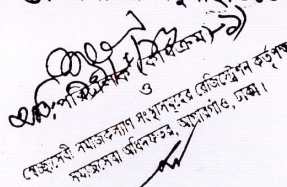 পরিচালক (কার্যক্রম-১)
ও
স্বেচ্ছাসেবী সমাজকল্যাণ সংস্থাসমূহের রেজিস্ট্রেশন কর্তৃপক্ষ
সমাজসেবা অধিদফতর, আগারগাঁও, ঢাকা।